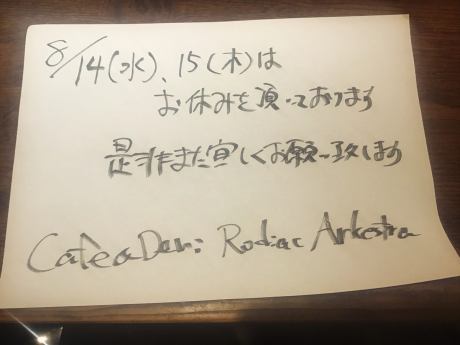 8/14(水)、15(木)は
お休みを頂いております
是非また宜しくお願い致します
Cafe a Dari Rodiac Arkestra